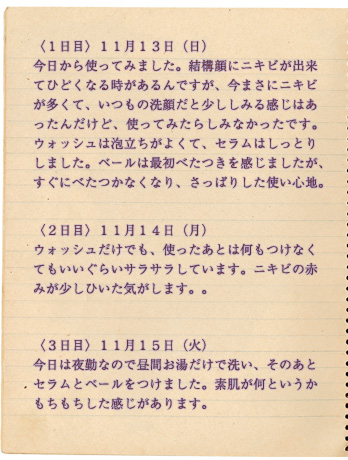 〈1日目〉11月13日（日）
今日から使ってみました。結構顔にニキビが出来
てひどくなる時があるんですが、今まさにニキビ
が多くて、いつもの洗顔だと少ししみる感じはあ
ったんだけど、使ってみたらしみなかったです。
ウォッシュは泡立ちがよくて、セラムはしっとり
しました。ベールは最初べたつきを感じましたが、
すぐにべたつかなくなり、さっぱりした使い心地。
〈2日目〉11月14日（月）
ウォッシュだけでも、使ったあとは何もつけなく
てもいいぐらいサラサラしています。ニキビの赤
みが少しひいた気がします。。
〈3日目〉11月15日（火）
今日は夜勤なので昼間お湯だけで洗い、そのあと
セラムとベールをつけました。素肌が何というか
もちもちした感じがあります。